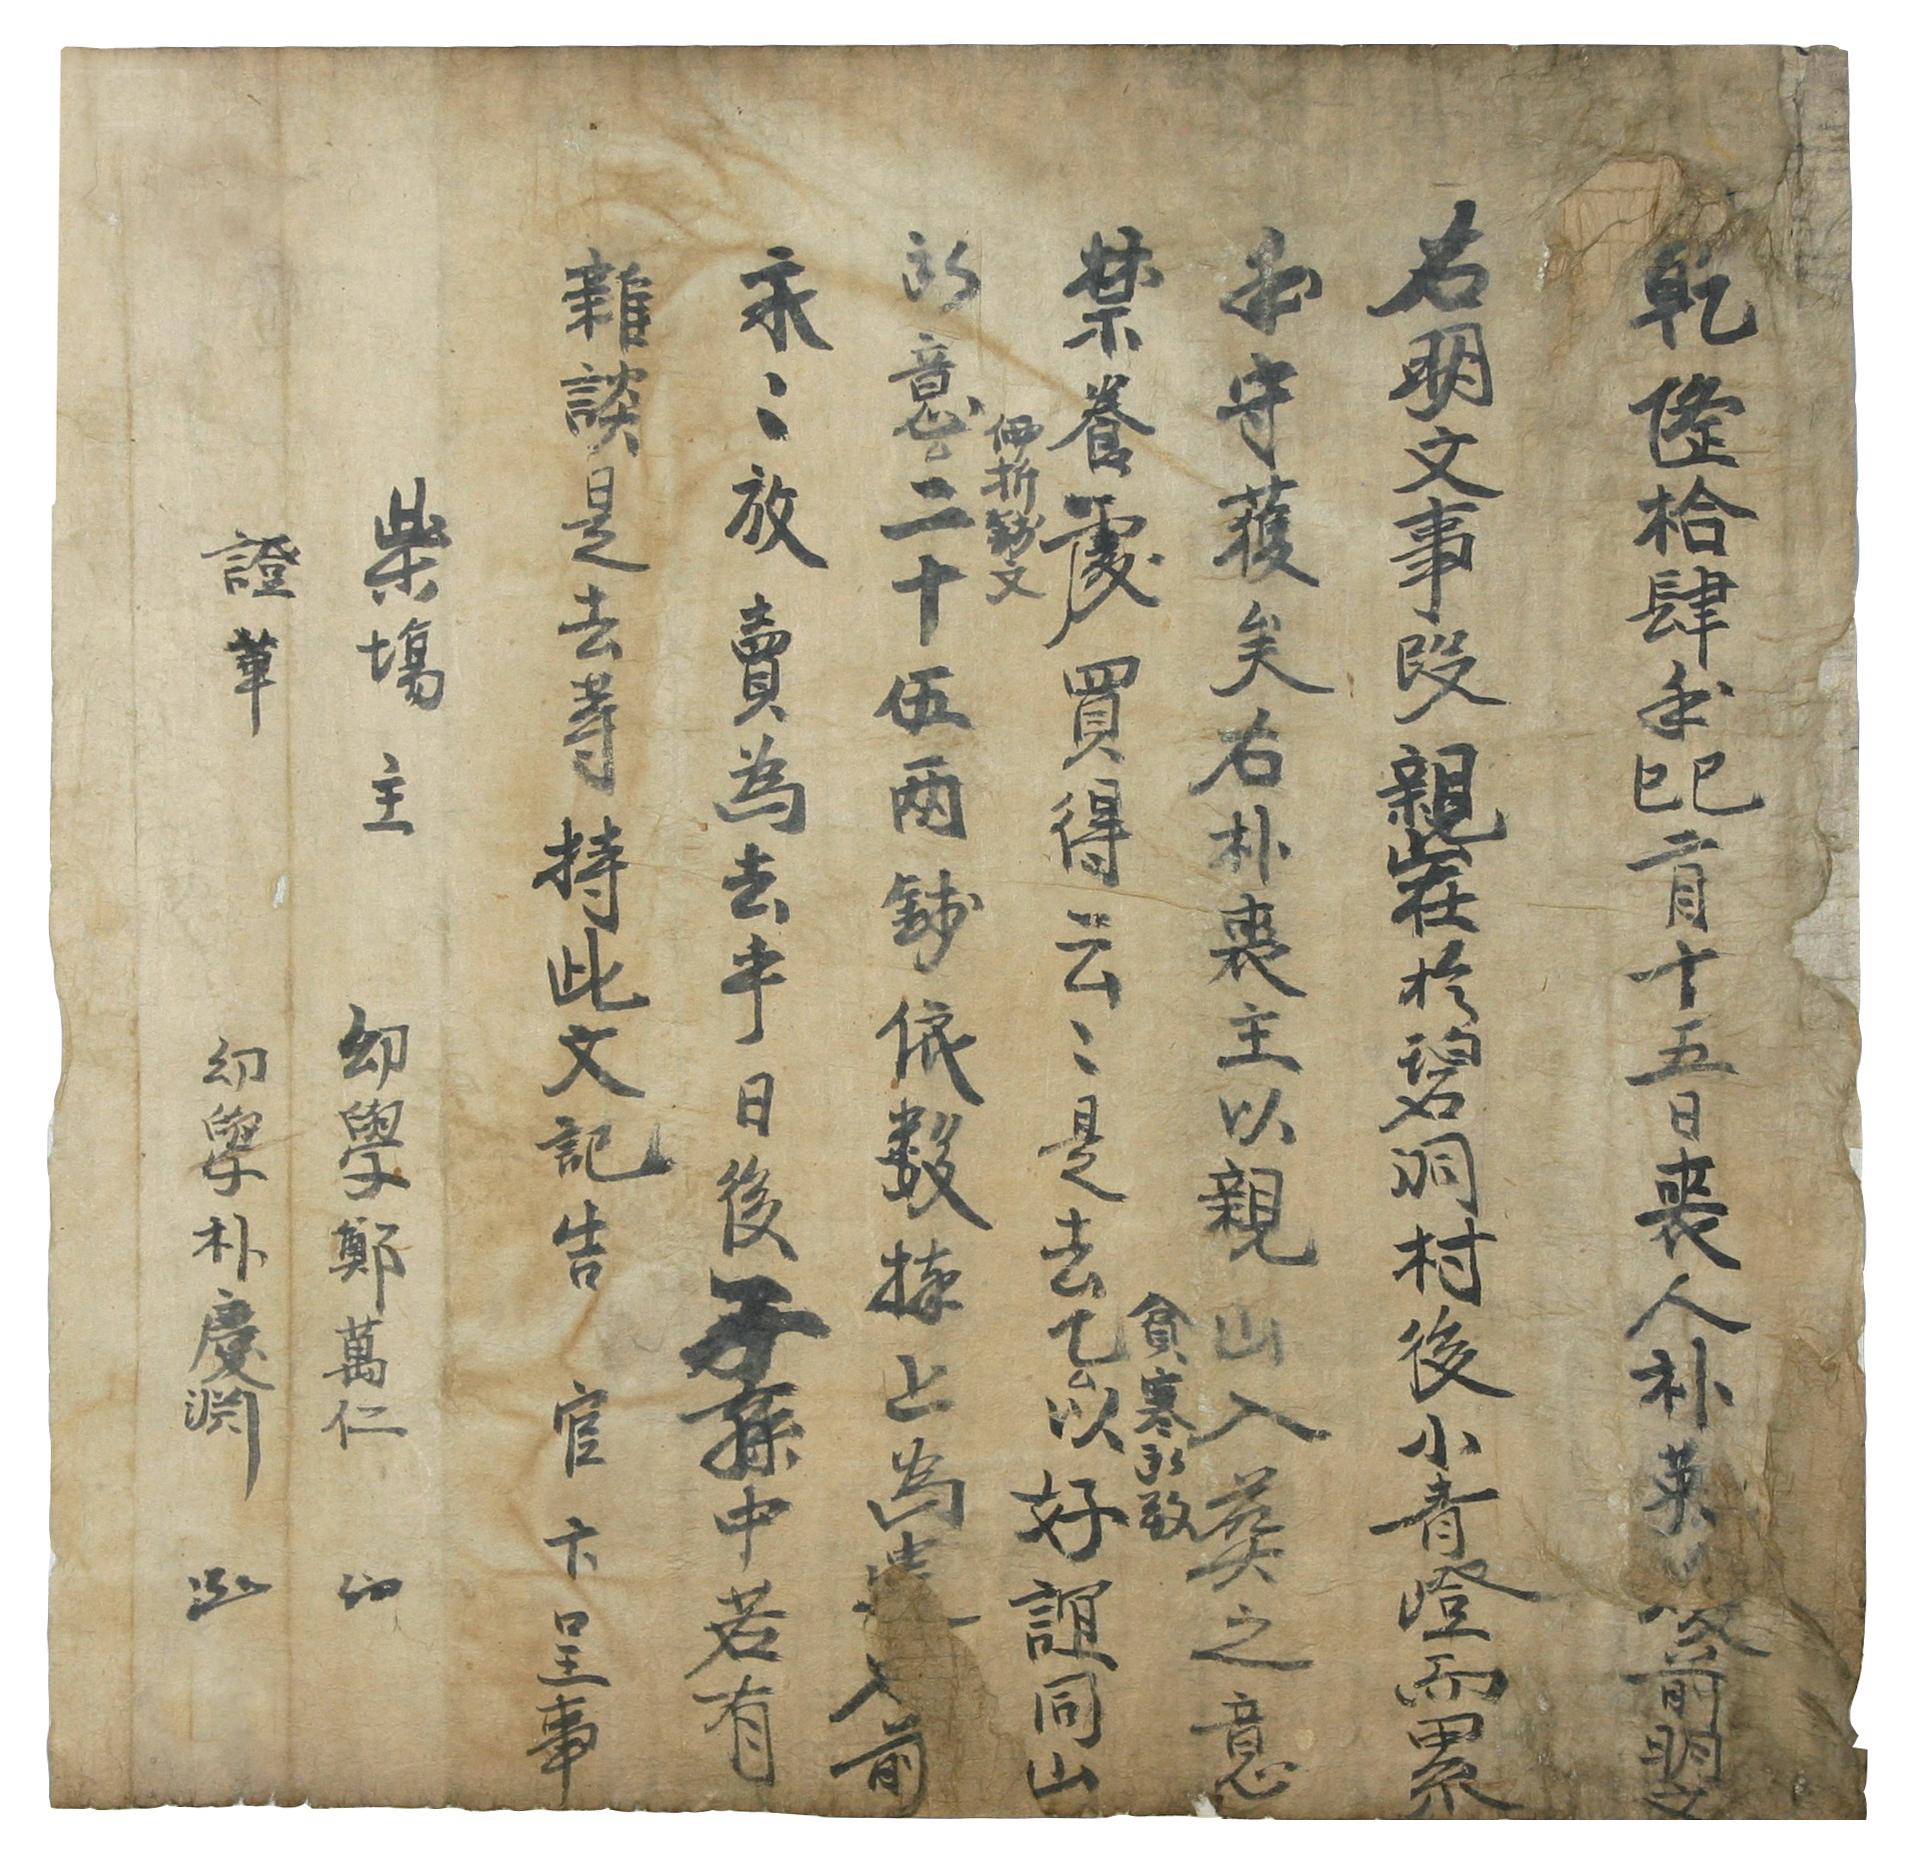 乾隆拾肆年己巳二月十五日喪人朴英 前明文
右明文事段親山在於碧洞村後小青嶝而累
年守護矣右朴喪主以親山入葬之意
禁養處買得云〻是去乙以好誼同山
貧寒所致
所意以二十伍兩錢依數捧上為遣 入前
価折錢文
永〻放賣為去乎日後子孫中若有
雜談是去等持此文記告官卞呈事
柴場主 幼學鄭萬仁
證筆 幼學朴慶淵